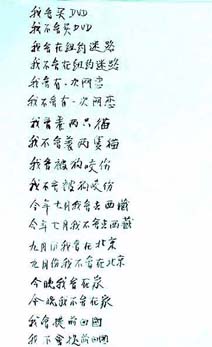 我会买DVD
我不会买DVD
我会在纽约迷路
我不会在纽约迷路
我会有一次网恋
我不会有一次网恋
我会养两只猫
我不会养两只猫
我会被狗咬伤
我不会被狗咬伤
今年七月我会去西藏
今年七月我不会去西藏
九月份我会在北京
九月份我不会在北京
今晚我会在家
今晚我不会在家
我会提前回国
我不会提前回国